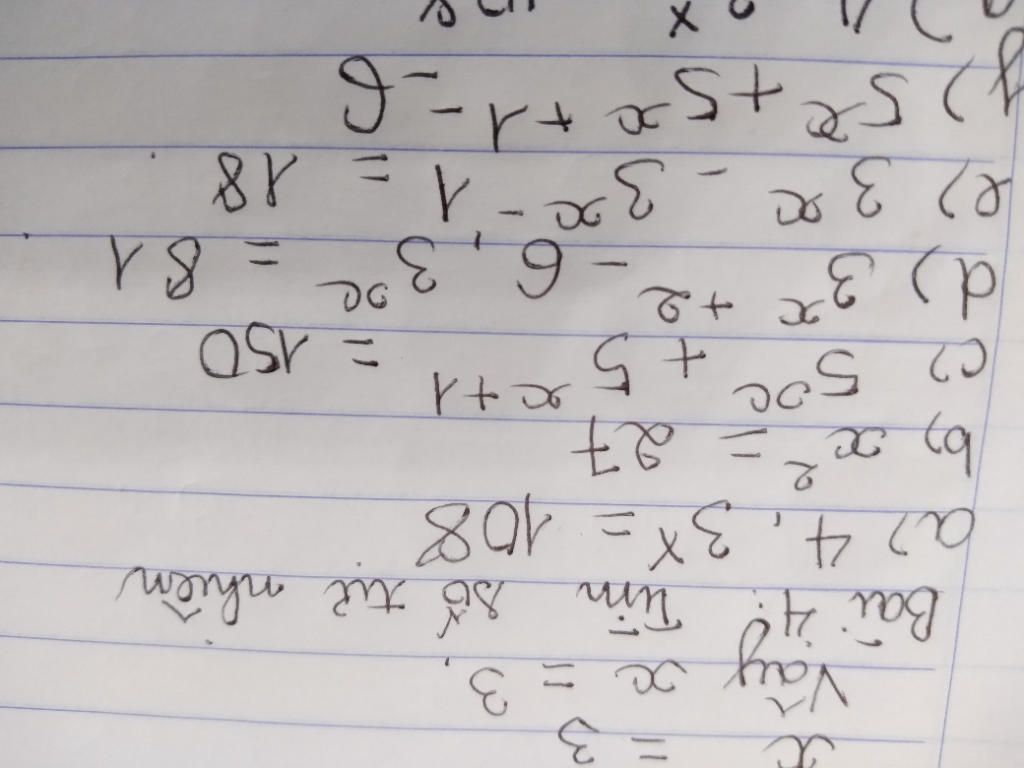 x = 3
Vậy x = 3.
Bài 4: Tìm số tự nhiên
a) 4 . 3^x = 108
b) x^2 = 27
c) 5^x + 5^x+1 = 150
d) 3^x+2 - 6 . 3^x = 81
e) 3^x - 3^x-1 = 18
g) 5^x + 5^x+1 - 6